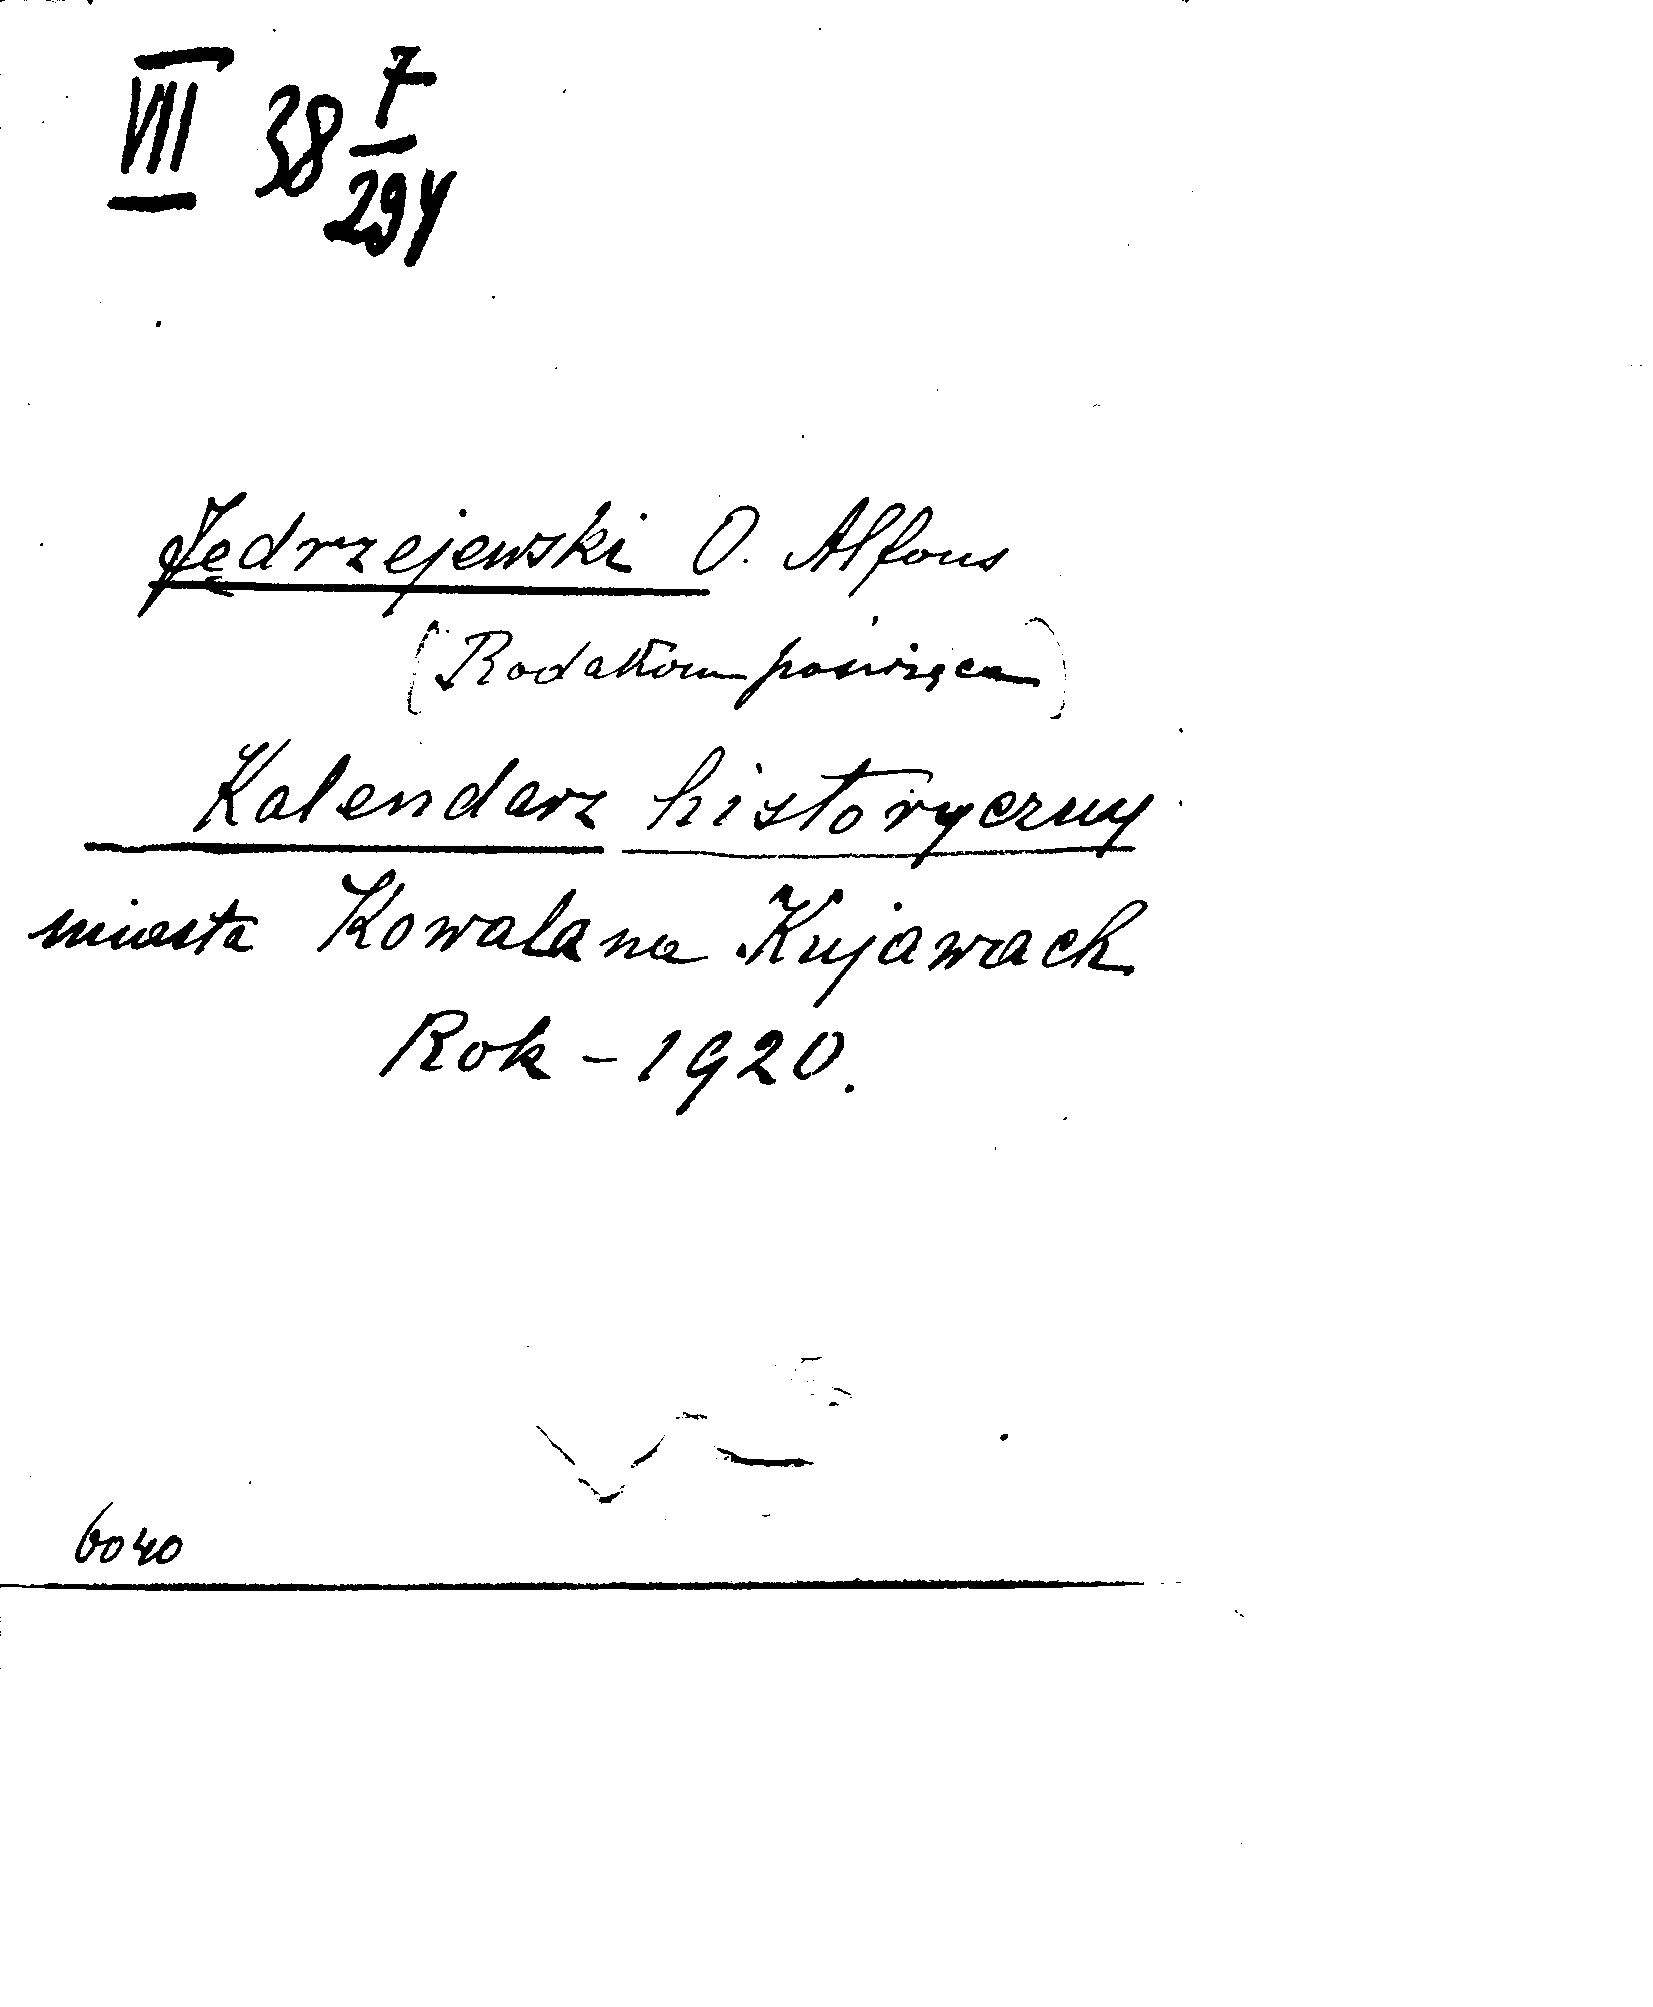 VIII 38 7/294
Jędrzejewski O. Alfons
(Rodakom poświęca)
Kalendarz historyczny
miasta Kowala na Kujawach
Rok - 1920.
6040